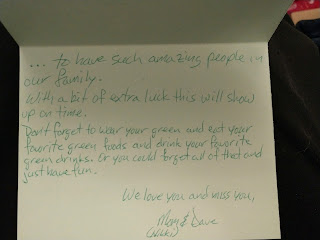 ... to have such amazing people in
our family.
With a bit of extra luck this will show
up on time.
Don't forget to wear your green and eat your
favorite green foods and drink your favorite
green drinks. Or you could forget all of that and
just have fun.
We love you and miss you,
& Dave